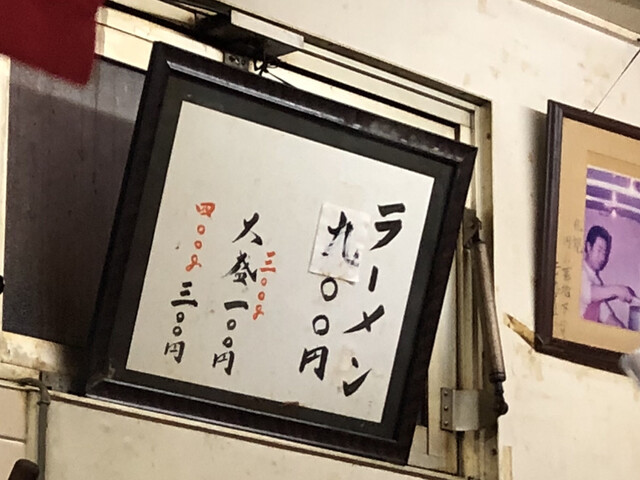 ラーメン
九〇〇円
三〇〇g
大盛一〇〇円
四〇〇g
三〇〇円